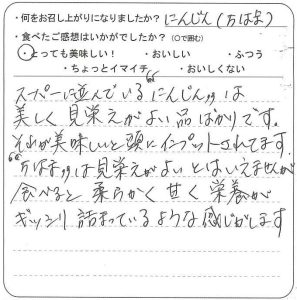 ・何をお召し上がりになりましたか？ にんじん(ちはま)
・食べたご感想はいかがでしたか？(○で囲む)
・とっても美味しい！ ・おいしい ・ふつう
・ちょっとイマイチ ・おいしくない
スーパーに並んでいる"にんじん"は
美しく見栄えがよい品ばかりです。
それが美味しいと頭にインプットされてます。
"ちはま"は見栄えがよいとはいえませんが
食べると柔らかく甘く栄養が
ギッシリ詰まっているような感じがします